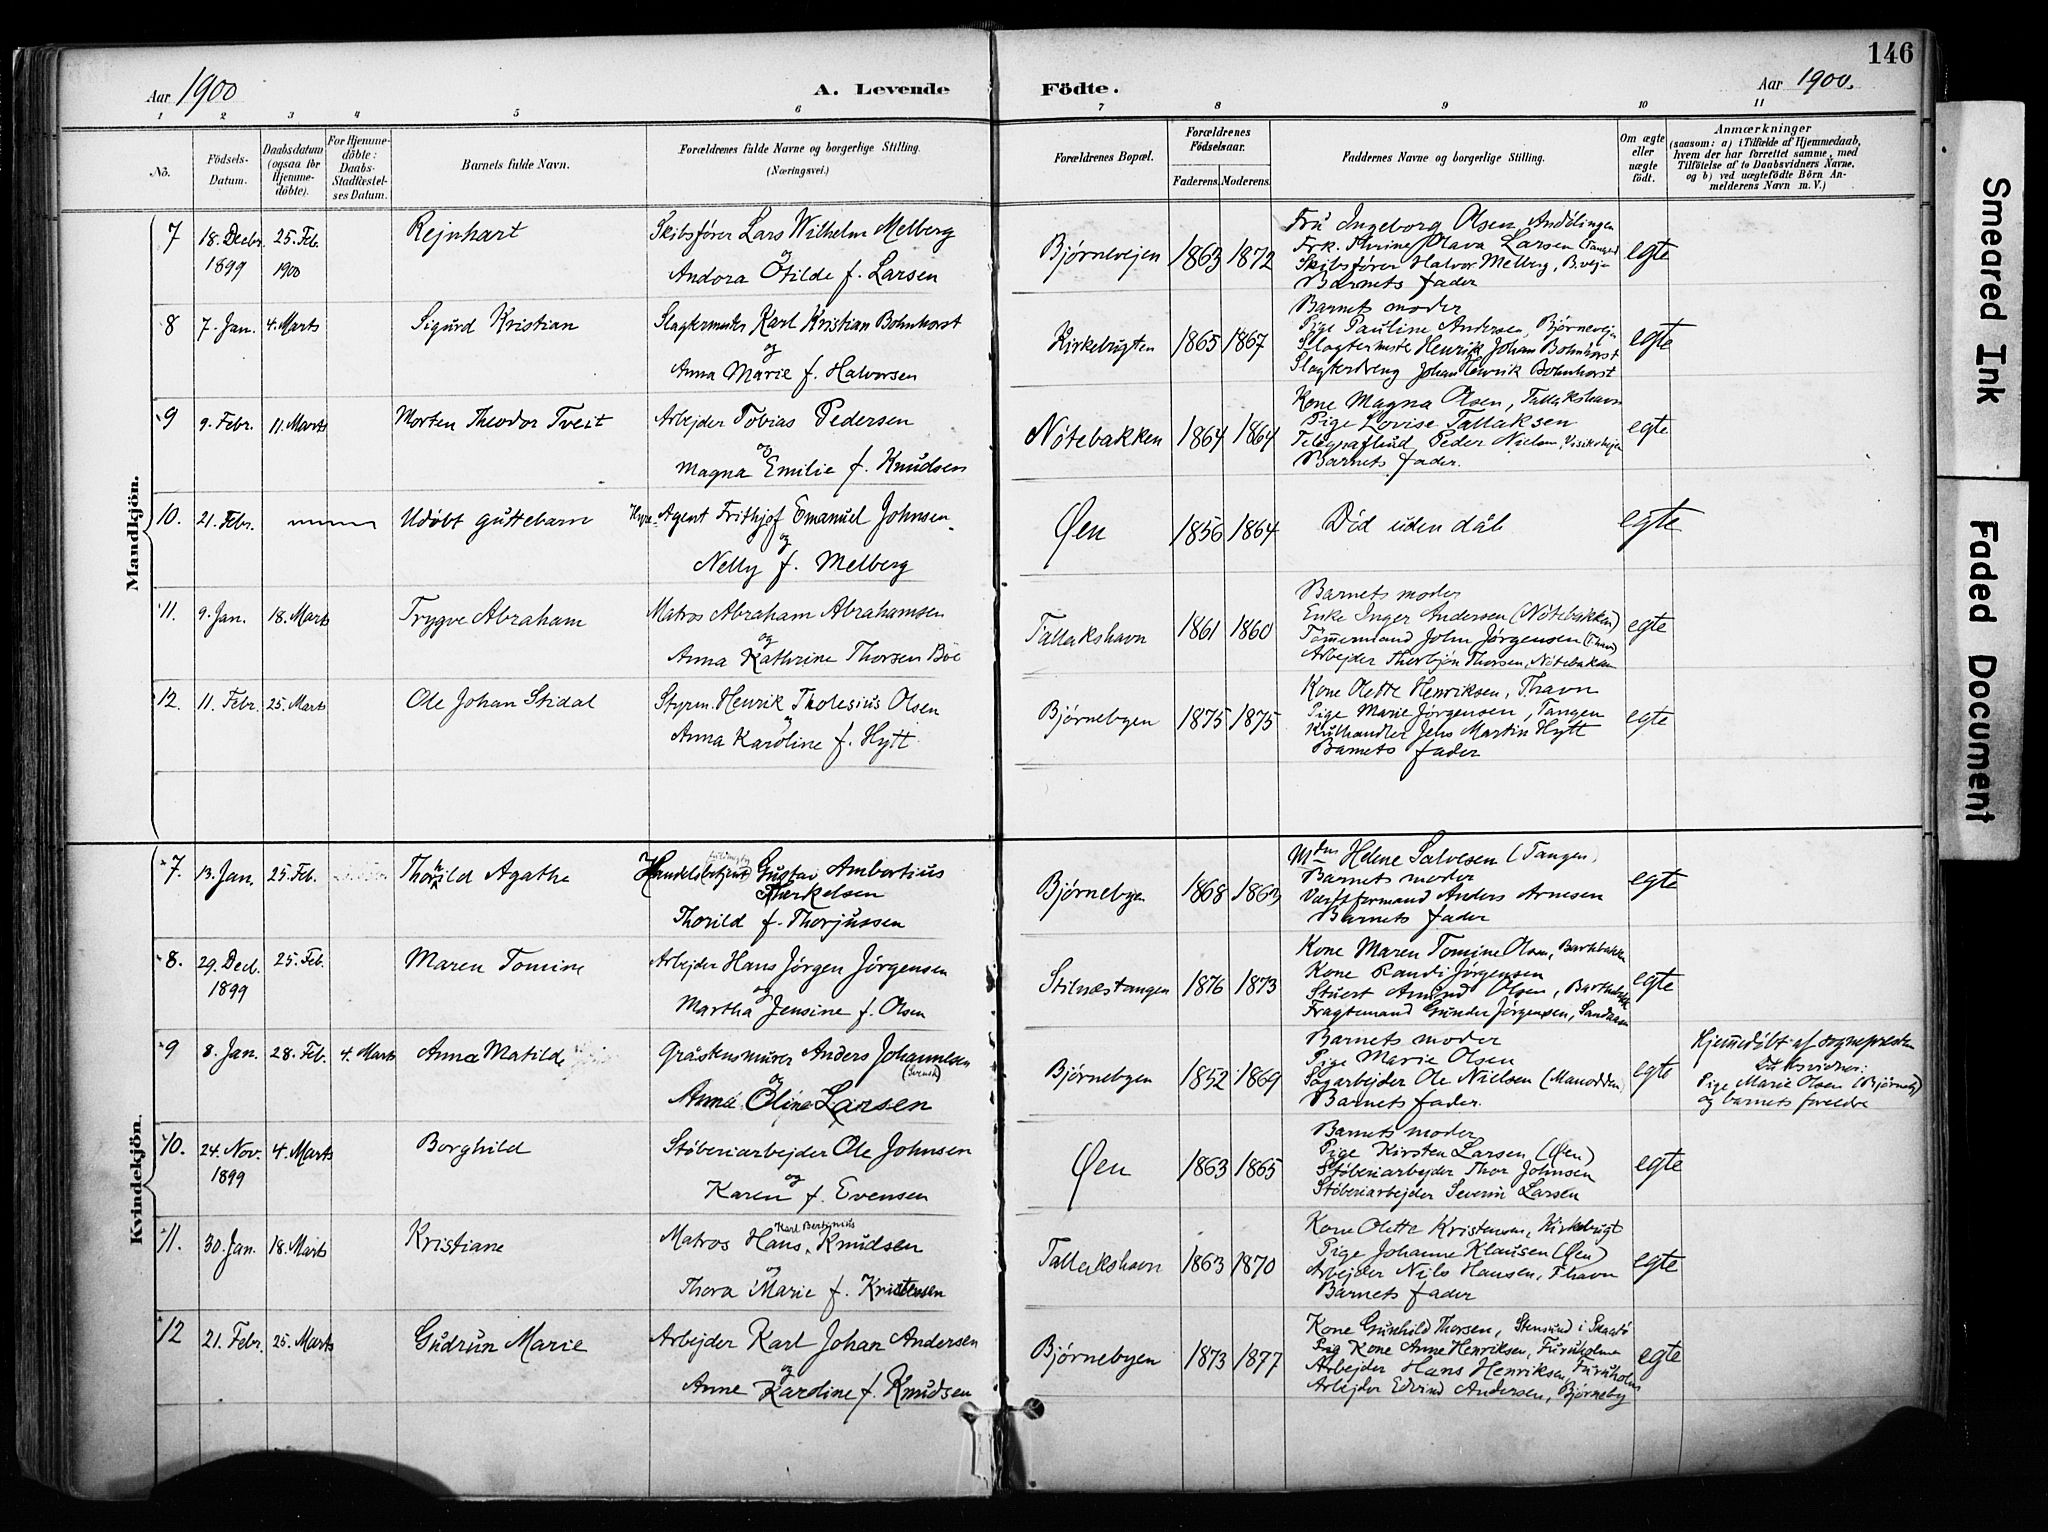 146
Aar 1900
A. Levende
Födte.
Aar 1900.
1 2 3 4 5 6 7 8 9 10 11
No.
Födsels-
Datum.
Daabsdatum
(ogsaa for
Hjemme-
döbte).
For Hjemme-
döbte:
Daabs-
Stadfæstel-
ses Datum.
Barnets fulde Navn.
Forældrenes fulde Navne og borgerlige Stilling.
(Næringsvei.)
Forældrenes Bopæl.
Forældrenes
Födselsaar.
Faderens. Moderens.
Faddernes Navne og borgerlige Stilling.
Om ægte
eller
uægte
födt.
Anmærkninger
(saasom: a) i Tilfælde af Hjemmedaab,
hvem der har forrettet samme, med
Tilföielse af to Daabsvidners Navne,
og b) ved uægtefödte Börn An-
melderens Navn m. V.)
Mandkjön.
7 18. Decbr. 1899 25. Feb. 1900 Rejnhart
Skibsfører Lars Wilhelm Melberg
og
Andora Otilde f. Larsen
Bjørnevejen 1863 1872
Fru Ingeborg Olsen
Frk. Olava Larsen (Tangen)
Skibsfører Halvor Melberg, B.vej-
Barnets fader
egte
8 7. Jan. 4. Marts Sigurd Kristian
Slagtermester Karl Kristian Bohnhorst
og
Anna Marie f. Halvorsen
Kirkebugten 1865 1867
Barnets moder
Pige Pauline Andersen, Bjørnevejen
Slagtermester Henrik Johan Bohnhorst
Slagterdreng Johan Henrik Bohnhorst
egte
9 9. Febr. 11. Marts Morten Theodor Tveit
Arbejder Tobias Pedersen
og
Magna Emilie f. Knudsen
Nötebakken 1864 1864
Kone Magna Olsen, Tallakshavn
Pige Lovise Tallaksen
Peder Nielsen
Barnets fader.
egte
10. 21. Febr. Udöbt guttebarn
Hyre-Agent Frithjof Emanuel Johnsen
og
Nelly f. Melberg
Øen 1856 1864
Död uden dåb
egte
11. 9. Jan. 18. Marts Trygve Abraham
Matros Abraham Abrahamsen
og
Anna Kathrine Thorsen Böe
Tallakshavn 1861 1860
Barnets moder
Enke Inger Andersen (Nötebakken)
Tömmermand John Jørgensen
Arbejder Thorbjön Thorsen, Nötebakken
egte
12. 11. Febr. 25. Marts Ole Johan Stidal
Styrm. Henrik Tholesius Olsen
og
Anna Karoline f. Hytt
Bjørnebyen 1875 1875
Kone Olette Henriksen, Thavn
Pige Marie Jørgensen, Tangen
Kulhandler Jens Martin Hytt
Barnets fader
egte
Kvindekjön.
7. 13. Jan. 25. Feb. Thorhild Agathe
Handelsbetjent Gustav Ambortius
Therkelsen
Thorild f. Thorjussen
Bjørnebyen 1868 1863
Mdm Helene Salvesen (Tangen)
Barnets moder
Værftsformand Anders Arnesen
Barnets fader
egte
8. 29. Dec. 1899 25. Feb. Maren Tomine
Arbejder Hans Jörgen Jörgensen
og
Martha Jensine f. Olsen
Stilnæstangen 1876 1873
Kone Maren Tomine Olsen, Barkbakken
Kone Randi Jørgensen
Stuert Amund Olsen,
Fragtemand Gunder Jørgensen, Sandaasen
egte
9 8. Jan. 28. Feb. 4. Marts Anna Matilde
Gråstensmurer Anders Johannesen
(Svensk)
og
Anna Oline Larsen
Bjørnebyen 1852 1869
Barnets moder
Pige Marie Olsen
Sagarbejder Ole Nielsen (Manodden)
Barnets fader.
egte
Hjemmedöbt af sognepresten
Dåbsvidner:
Pige Marie Olsen (Bjørneby)
og barnets foreldre
10. 24. Nov. 1899 4. Marts Borghild
Støberiarbejder Ole Johnsen
og
Karen f. Evensen
Øen 1863 1865
Barnets moder
Pige Kirsten Larsen (Øen)
Støberiarbejder Thor Johnsen
Støberiarbejder Severin Larsen
egte
11. 30. Jan. 18. Marts Kristiane
Karl Bertinius
Matros Hans Knudsen
og
Thora Marie f. Kristensen
Tallakshavn 1863 1870
Kone Olette Kristensen, Kirkebugt
Pige Johanne Klausen (Øen)
Arbejder Nils Hansen, Thavn
Barnets fader
egte
12 21. Febr. 25. Marts Gudrun Marie
Arbejder Karl Johan Andersen
og
Anne Karoline f. Knudsen
Bjørnebyen 1873 1877
Kone Gunhild Thorsen, Stensund i Skaatö
Kone Anne Henriksen, Furuholmen
Arbejder Hans Henriksen, Furuholm
Arbejder Edvind Andersen, Bjørneby
egte
Smeared Ink
Faded Document